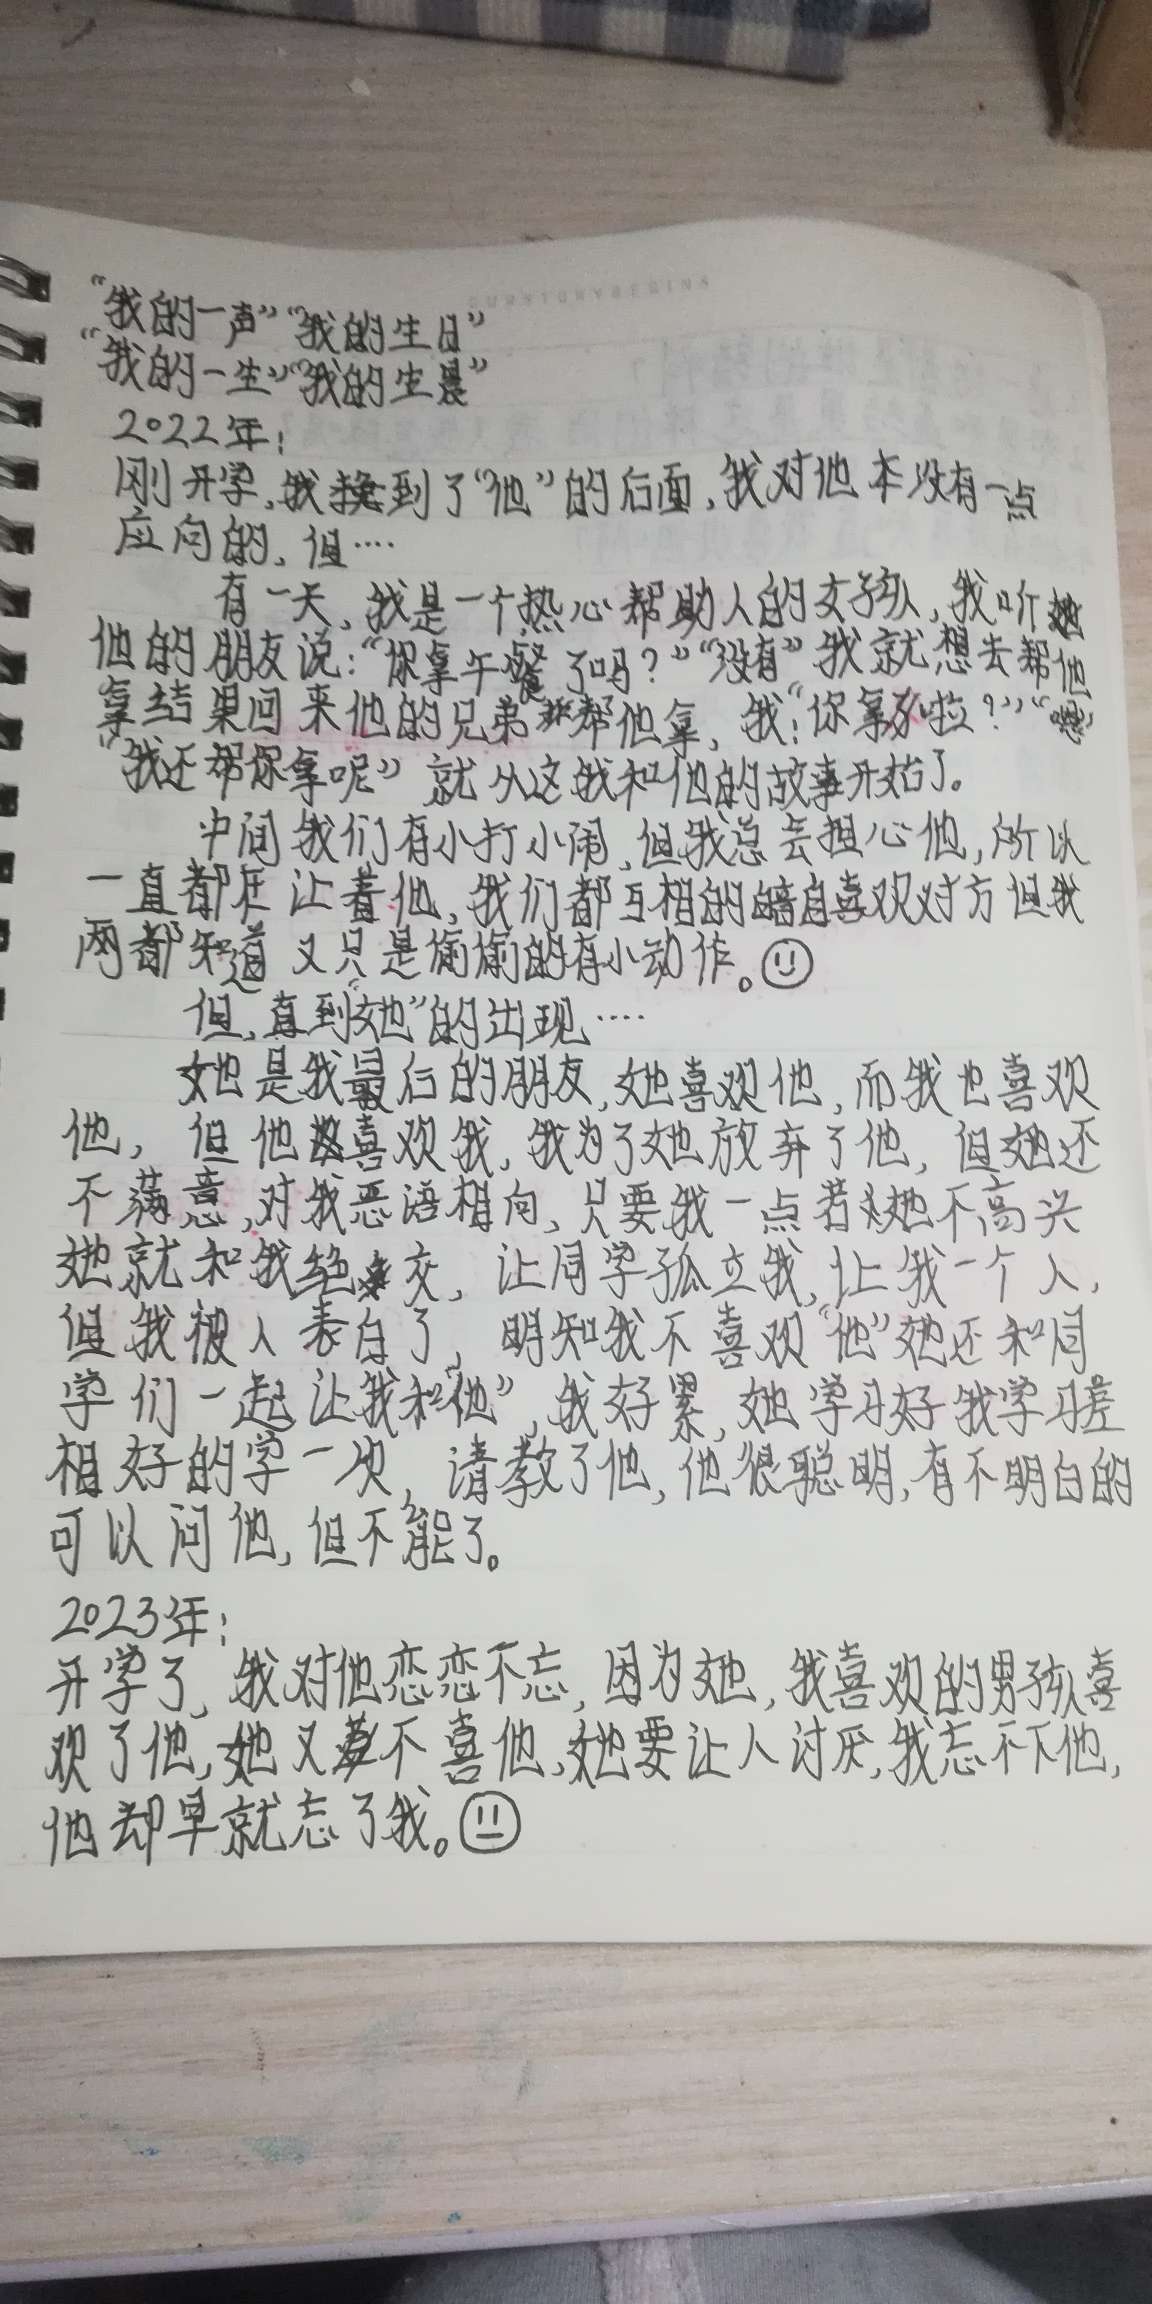 “我的一声”“我的生日”
“我的一生”“我的生晨”
2022年:
刚开学,我换到了“他”的后面,我对他本没有一点
应向的,但····
有一天,我是一个热心帮助人的女孩,我听
他的朋友说:“你拿午餐了吗?”“没有”我就想去帮他
拿结果回来他的兄弟帮他拿,我:“你拿啦?”“嗯”
“我还帮你拿呢”就从这我和他的故事开始了。
中间我们有小打小闹,但我总会担心他,所以
一直都在让着他,我们都互相的暗自喜欢对方但我
两都知道又只是偷偷的有小动作。
但,直到“她”的出现····
她是我最后的朋友,她喜欢他,而我也喜欢
他,但他喜欢我,我为了她放弃了他,但她还
不满意,对我恶语相向,只要我一点若她不高兴
她就和我绝交,让同学孤立我,让我一个人,
但我被人表白了,明知我不喜欢“他”她还和同
学们一起让我和“他”,我好累,她学习好我学习差
相好的学一次,请教了他,他很聪明,有不明白的
可以问他,但不能了。
2023年:
开学了,我对他恋恋不忘,因为她,我喜欢的男孩喜
欢了他,她又不喜他,她要让人讨厌,我忘不下他,
他却早就忘了我。